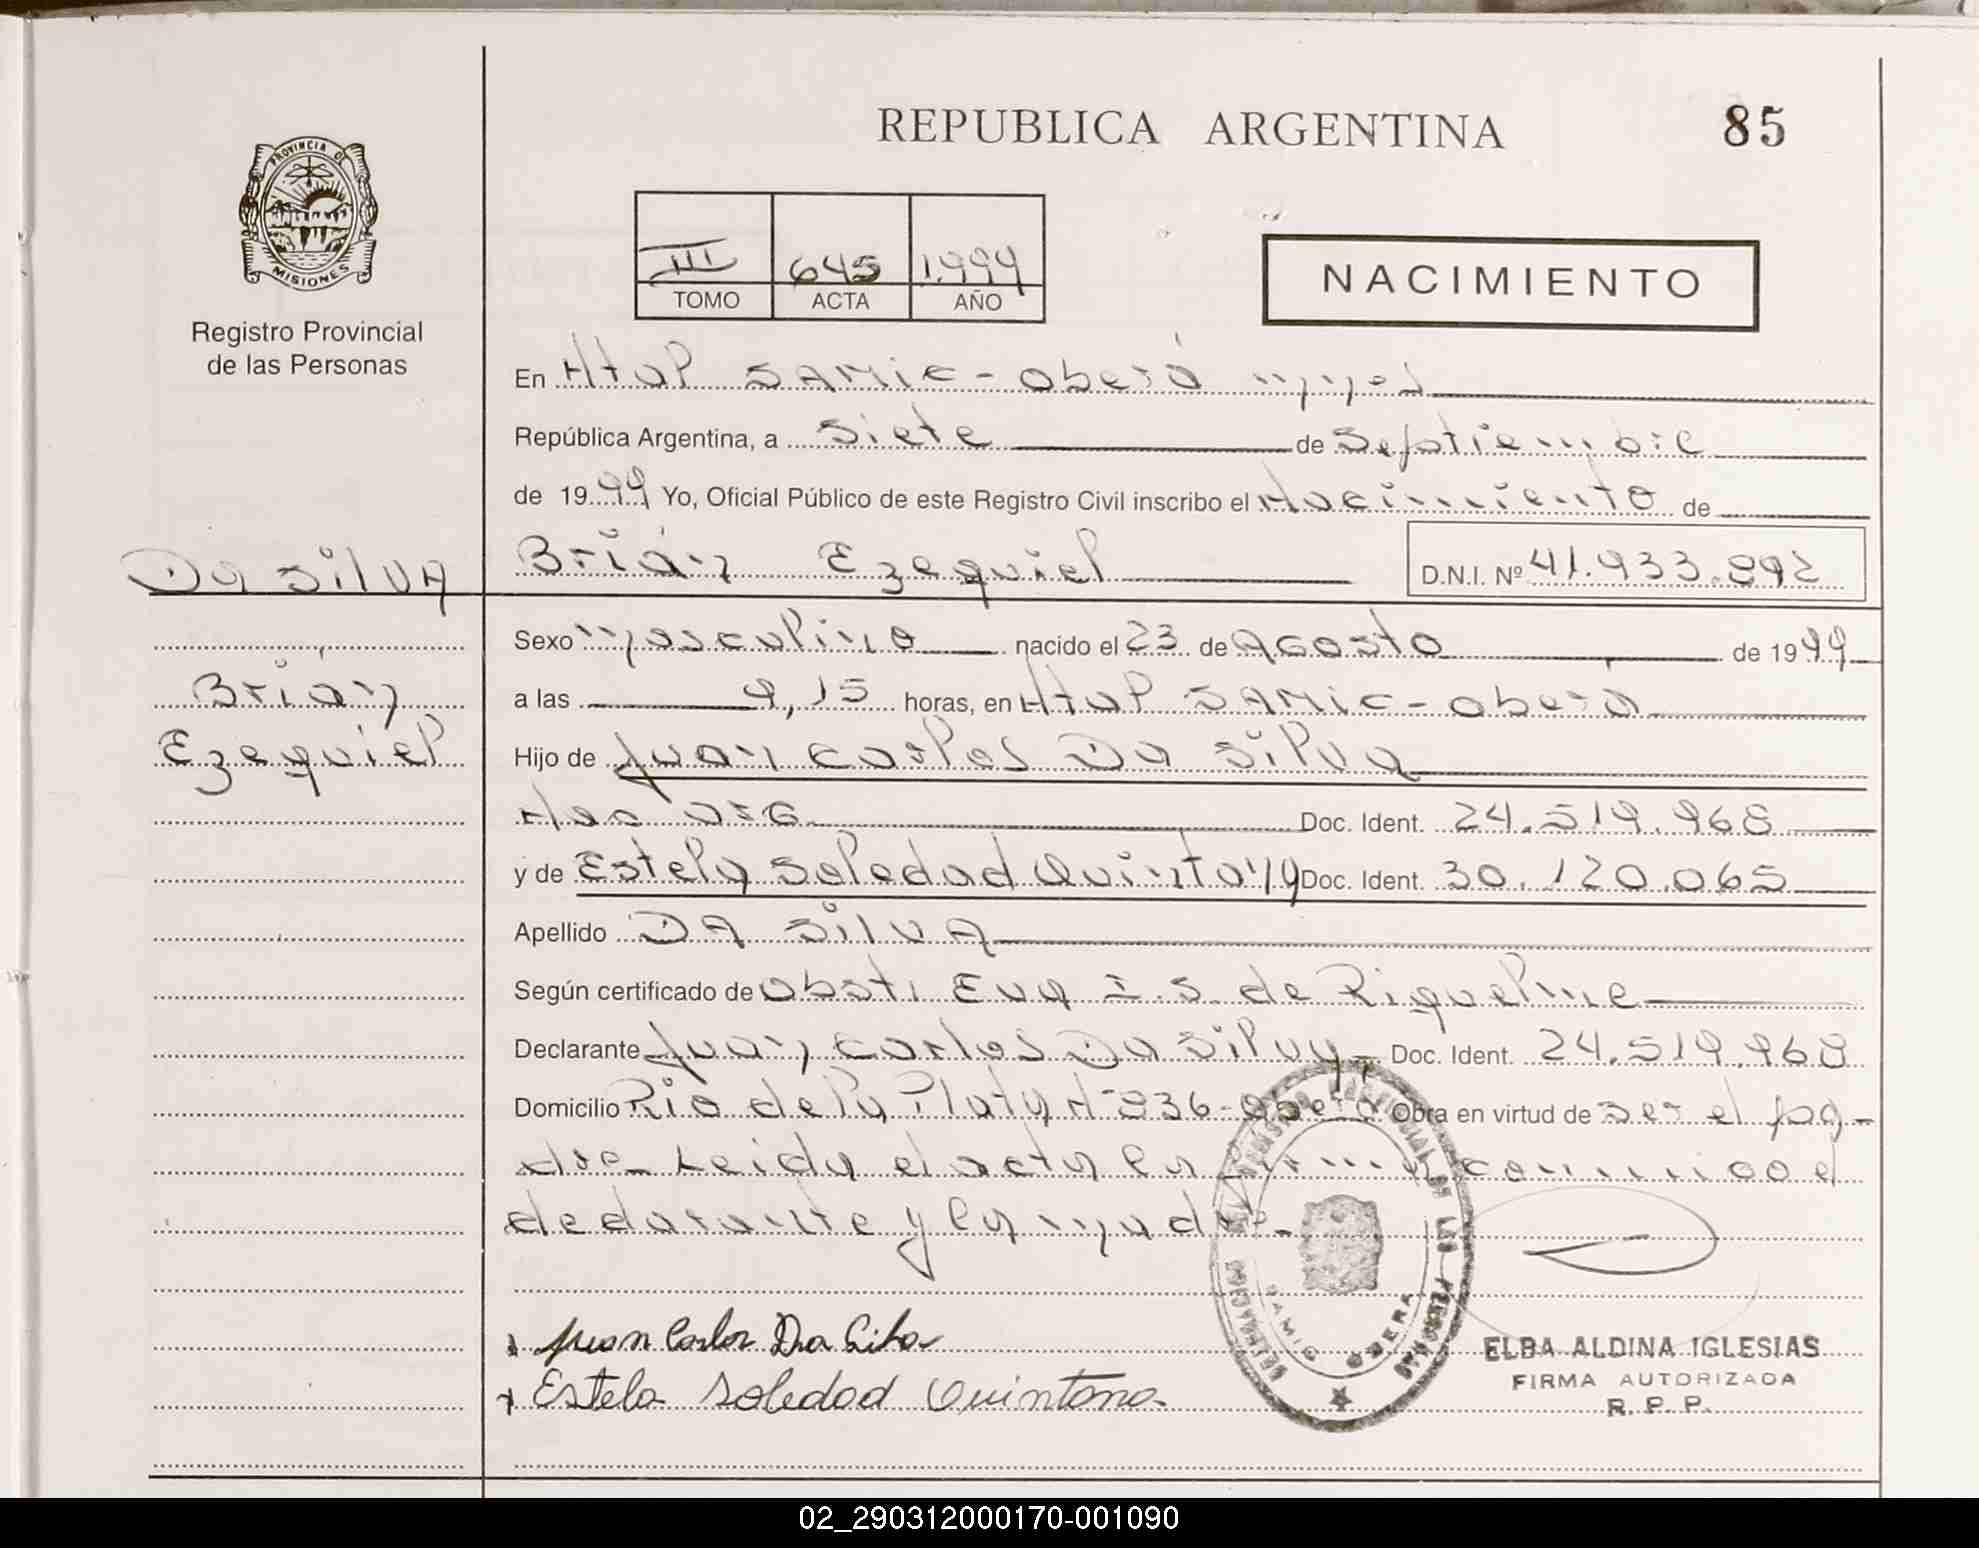 REPUBLICA ARGENTINA
85
PROVINCIA DE
MISIONES
Registro Provincial
de las Personas
III 645 1.999
TOMO ACTA AÑO
NACIMIENTO
En Htal SAMIC - Oberá Mnes
República Argentina, a siete de Septiembre
de 1999 Yo, Oficial Público de este Registro Civil inscribo el Nacimiento de
Da SILVA
Brián Ezequiel D.N.I. Nº 41.933.892
Brián
Ezequiel
Sexo masculino nacido el 23 de Agosto de 1999
a las 9,15 horas, en Htal SAMIC - Oberá
Hijo de Juan Carlos Da Silva
Doc. Ident. 24.519.968
y de Estela Soledad Quintana Doc. Ident. 30.120.065
Apellido DA SILVA
Según certificado de Obst. Eva I. S. de Riquelme
Declarante Juan Carlos Da Silva Doc. Ident. 24.519.968
Domicilio Rio de la Plata Nº 836 - Oberá Obra en virtud de ser el pa-
dre_ Leida el acta la firma conmigo el
declarante y la madre.-
Juan Carlos Da Silva
Estela Soledad Quintana
DELEGACION REGISTRO PROVINCIAL DE LAS PERSONAS
SAMIC OBERA
ELBA ALDINA IGLESIAS
FIRMA AUTORIZADA
R. P. P.
02_290312000170-001090